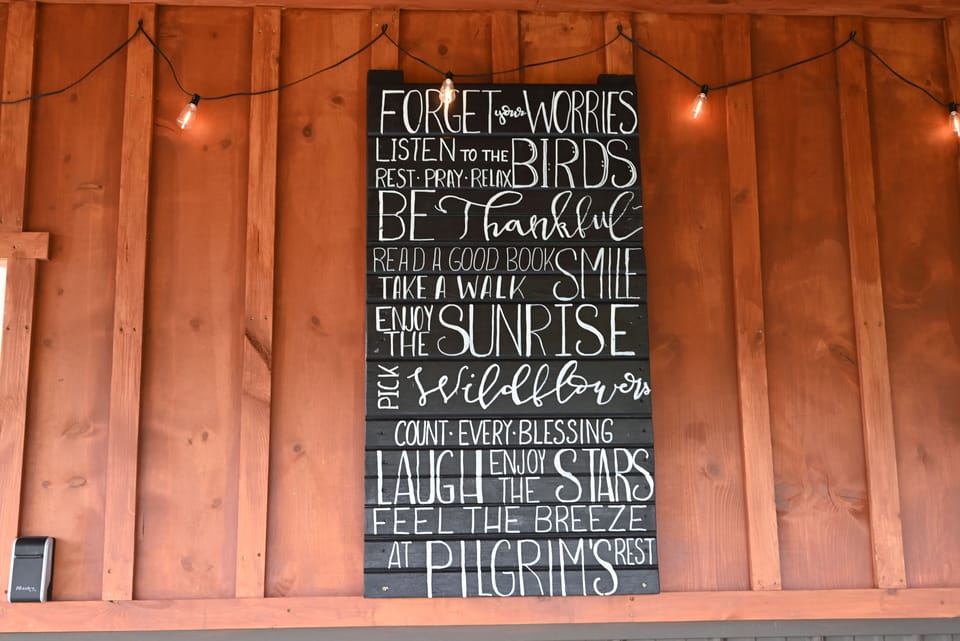 FORGET your WORRIES
LISTEN TO THE BIRDS
REST · PRAY · RELAX
BE Thankful
READ A GOOD BOOK SMILE
TAKE A WALK
ENJOY THE SUNRISE
PICK Wildflowers
COUNT · EVERY · BLESSING
LAUGH ENJOY THE STARS
FEEL THE BREEZE
AT PILGRIM'S REST